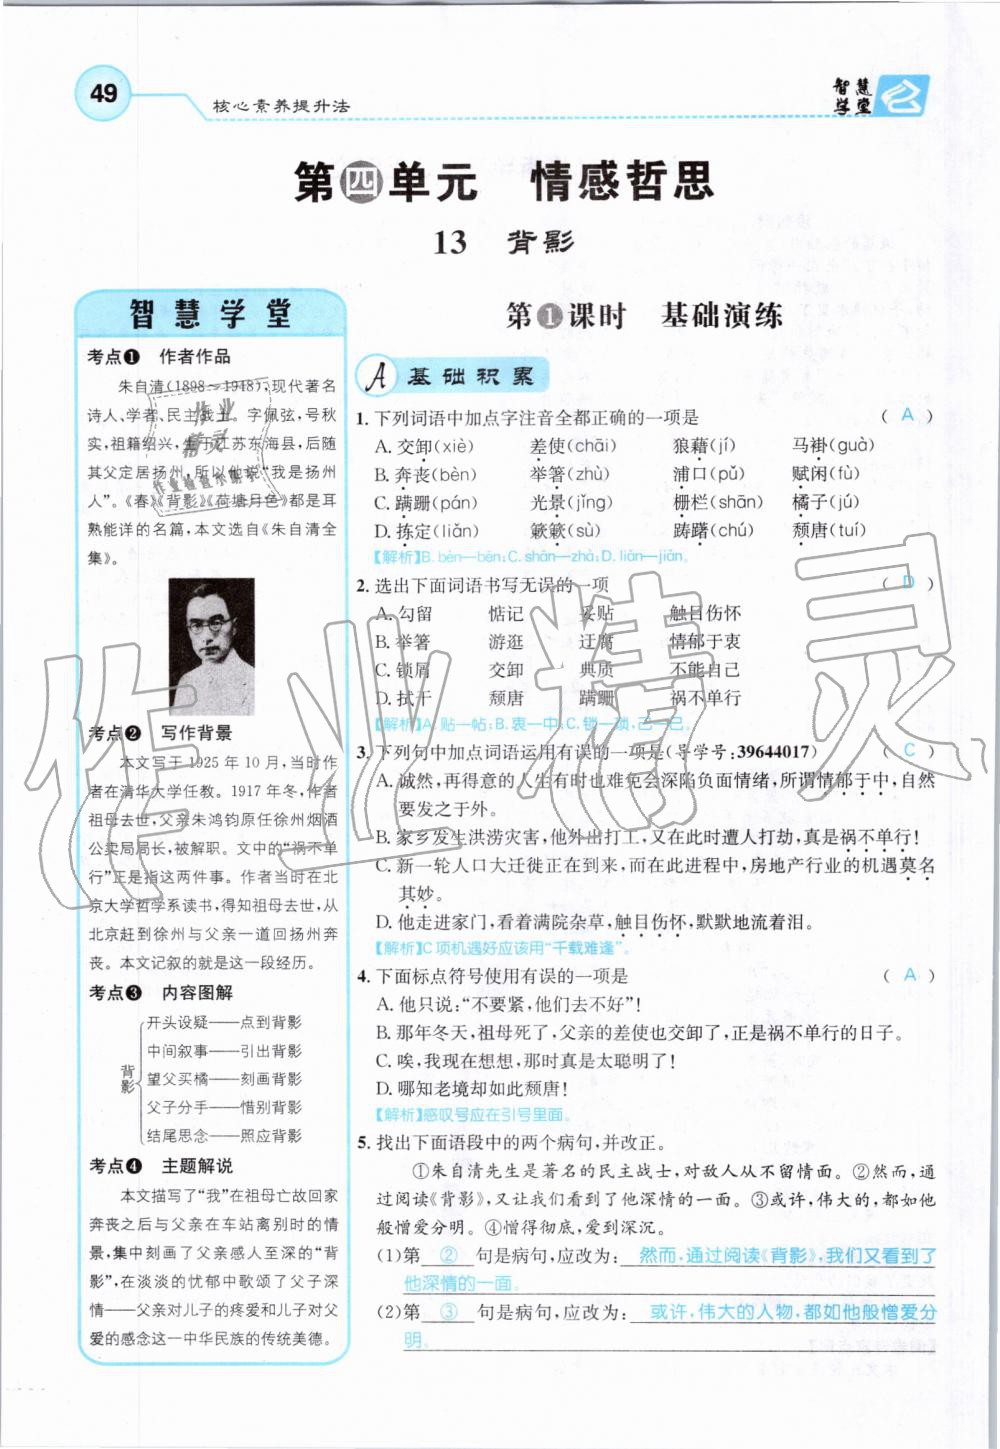 49
核心素养提升法
智慧
学堂
第四单元 情感哲思
13 背影
智慧学堂
考点❶ 作者作品
朱自清(1898～1948),现代著名
诗人、学者、民主战士。字佩弦,号秋
实,祖籍绍兴,生于江苏东海县,后随
其父定居扬州,所以他说“我是扬州
人”。《春》《背影》《荷塘月色》都是耳
熟能详的名篇,本文选自《朱自清全
集》。
考点❷ 写作背景
本文写于1925年10月,当时作
者在清华大学任教。1917年冬,作者
祖母去世,父亲朱鸿钧原任徐州烟酒
公卖局局长,被解职。文中的“祸不单
行”正是指这两件事。作者当时在北
京大学哲学系读书,得知祖母去世,从
北京赶到徐州与父亲一道回扬州奔
丧。本文记叙的就是这一段经历。
考点❸ 内容图解
背影
开头设疑——点到背影
中间叙事——引出背影
望父买橘——刻画背影
父子分手——惜别背影
结尾思念——照应背影
考点❹ 主题解说
本文描写了“我”在祖母亡故回家
奔丧之后与父亲在车站离别时的情
景,集中刻画了父亲感人至深的“背
影”,在淡淡的忧郁中歌颂了父子深
情——父亲对儿子的疼爱和儿子对父
爱的感念这一中华民族的传统美德。
第❶课时 基础演练
A 基础积累
1. 下列词语中加点字注音全都正确的一项是 ( A )
A. 交卸(xiè) 差使(chāi) 狼藉(jí) 马褂(guà)
B. 奔丧(bèn) 举箸(zhù) 浦口(pǔ) 赋闲(fù)
C. 蹒跚(pán) 光景(jǐng) 栅栏(shān) 橘子(jú)
D. 拣定(liǎn) 簌簌(sù) 踌躇(chú) 颓唐(tuí)
【解析】B. bèn—bēn; C. shān—zhà; D. liǎn—jiǎn。
2. 选出下面词语书写无误的一项 ( D )
A. 勾留 惦记 妥贴 触目伤怀
B. 举箸 游逛 迂腐 情郁于衷
C. 锁屑 交卸 典质 不能自己
D. 拭干 颓唐 蹒跚 祸不单行
【解析】A. 贴—帖; B. 衷—中; C. 锁—琐,己—已。
3. 下列句中加点词语运用有误的一项是(导学号:39644017) ( C )
A. 诚然,再得意的人生有时也难免会深陷负面情绪,所谓情郁于中,自然
要发之于外。
B. 家乡发生洪涝灾害,他外出打工,又在此时遭人打劫,真是祸不单行!
C. 新一轮人口大迁徙正在到来,而在此进程中,房地产行业的机遇莫名
其妙。
D. 他走进家门,看着满院杂草,触目伤怀,默默地流着泪。
【解析】C项机遇好应该用“千载难逢”。
4. 下面标点符号使用有误的一项是 ( A )
A. 他只说:“不要紧,他们去不好”!
B. 那年冬天,祖母死了,父亲的差使也交卸了,正是祸不单行的日子。
C. 唉,我现在想想,那时真是太聪明了!
D. 哪知老境却如此颓唐!
【解析】感叹号应在引号里面。
5. 找出下面语段中的两个病句,并改正。
①朱自清先生是著名的民主战士,对敌人从不留情面。②然而,通
过阅读《背影》,又让我们看到了他深情的一面。③或许,伟大的,都如他
般憎爱分明。④憎得彻底,爱到深沉。
(1)第 ② 句是病句,应改为: 然而,通过阅读《背影》,我们又看到了
他深情的一面。
(2)第 ③ 句是病句,应改为: 或许,伟大的人物,都如他般憎爱分
明。
作业精灵